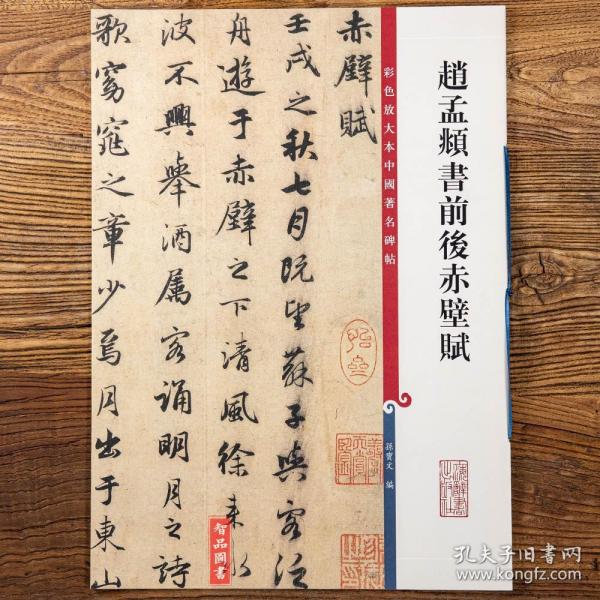 趙孟頫書前後赤壁賦
彩色放大本中國著名碑帖
孫寶文 編
赤壁賦
壬戌之秋七月既望蘇子與客泛
舟遊于赤壁之下清風徐來水
波不興舉酒屬客誦明月之詩
歌窈窕之章少焉月出于東山
智品圖書
孔夫子旧书网
www.kongfz.com